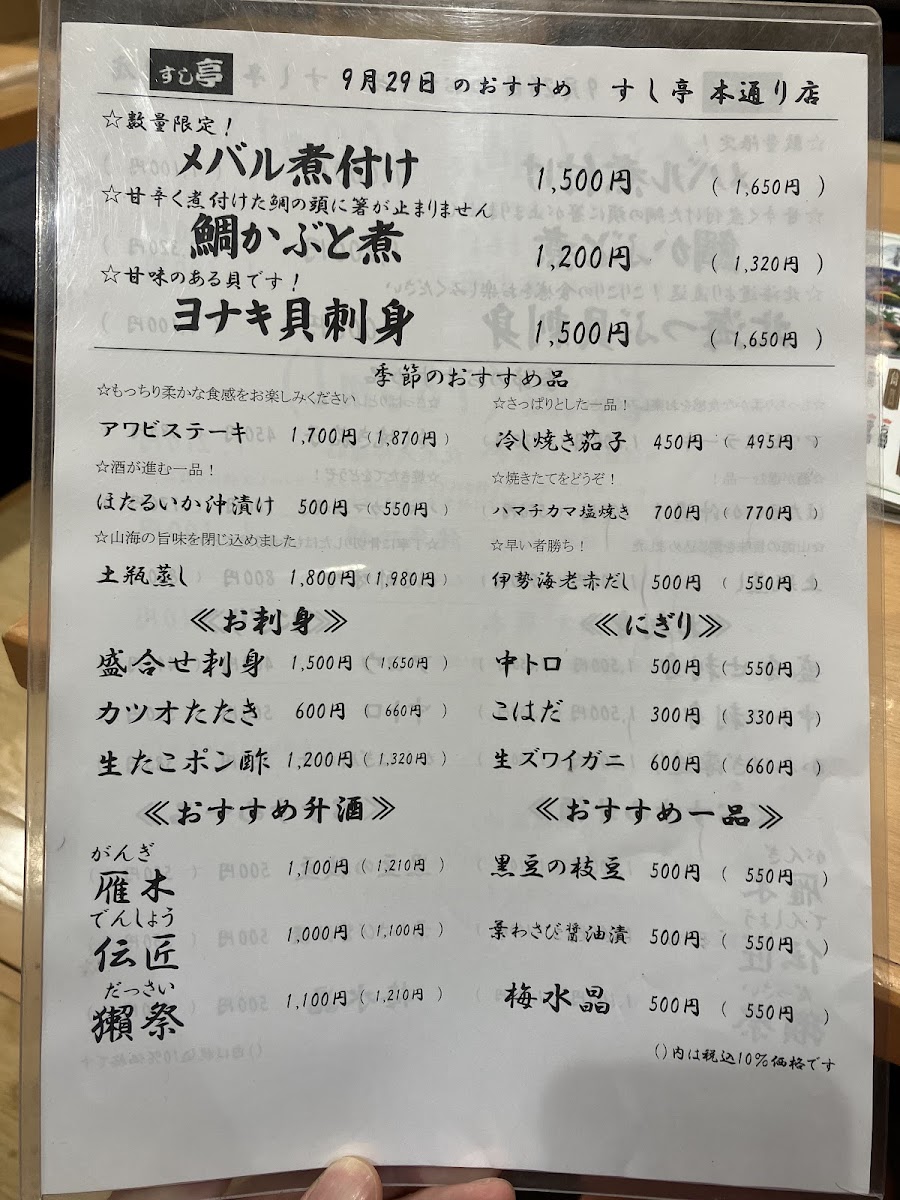 すし亭 9月29日 のおすすめ すし亭 本通り店
☆数量限定！
メバル煮付け 1,500円 ( 1,650円 )
☆甘辛く煮付けた鯛の頭に箸が止まりません
鯛かぶと煮 1,200円 ( 1,320円 )
☆甘味のある貝です！
ヨナキ貝刺身 1,500円 ( 1,650円 )
季節のおすすめ品
☆もっちり柔かな食感をお楽しみください
アワビステーキ 1,700円 ( 1,870円 )
☆酒が進む一品！
ほたるいか沖漬け 500円 ( 550円 )
☆山海の旨味を閉じ込めました
土瓶蒸し 1,800円 ( 1,980円 )
☆さっぱりとした一品！
冷し焼き茄子 450円 ( 495円 )
☆焼きたてをどうぞ！
ハマチカマ塩焼き 700円 ( 770円 )
☆早い者勝ち！
伊勢海老赤だし 500円 ( 550円 )
≪お刺身≫
盛合せ刺身 1,500円 ( 1,650円 )
カツオたたき 600円 ( 660円 )
生たこポン酢 1,200円 ( 1,320円 )
≪にぎり≫
中トロ 500円 ( 550円 )
こはだ 300円 ( 330円 )
生ズワイガニ 600円 ( 660円 )
≪おすすめ升酒≫
がんぎ
雁木 1,100円 ( 1,210円 )
でんしょう
伝匠 1,000円 ( 1,100円 )
だっさい
獺祭 1,100円 ( 1,210円 )
≪おすすめ一品≫
黒豆の枝豆 500円 ( 550円 )
葉わさび醤油漬 500円 ( 550円 )
梅水晶 500円 ( 550円 )
()内は税込10%価格です